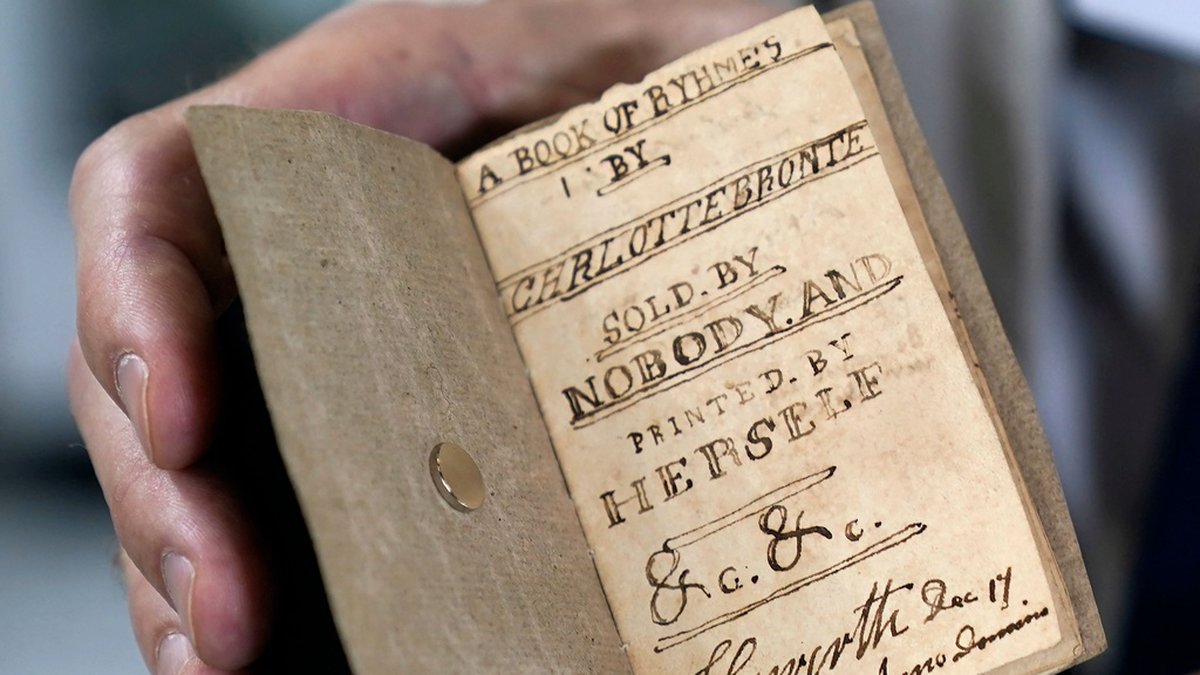 A BOOK OF RYHME'S
BY
CHRLOTTE BRONTE
SOLD. BY
NOBODY. AND
PRINTED. BY
HERSELF
&c. &c.
Haworth Dec 17
Anno Domino